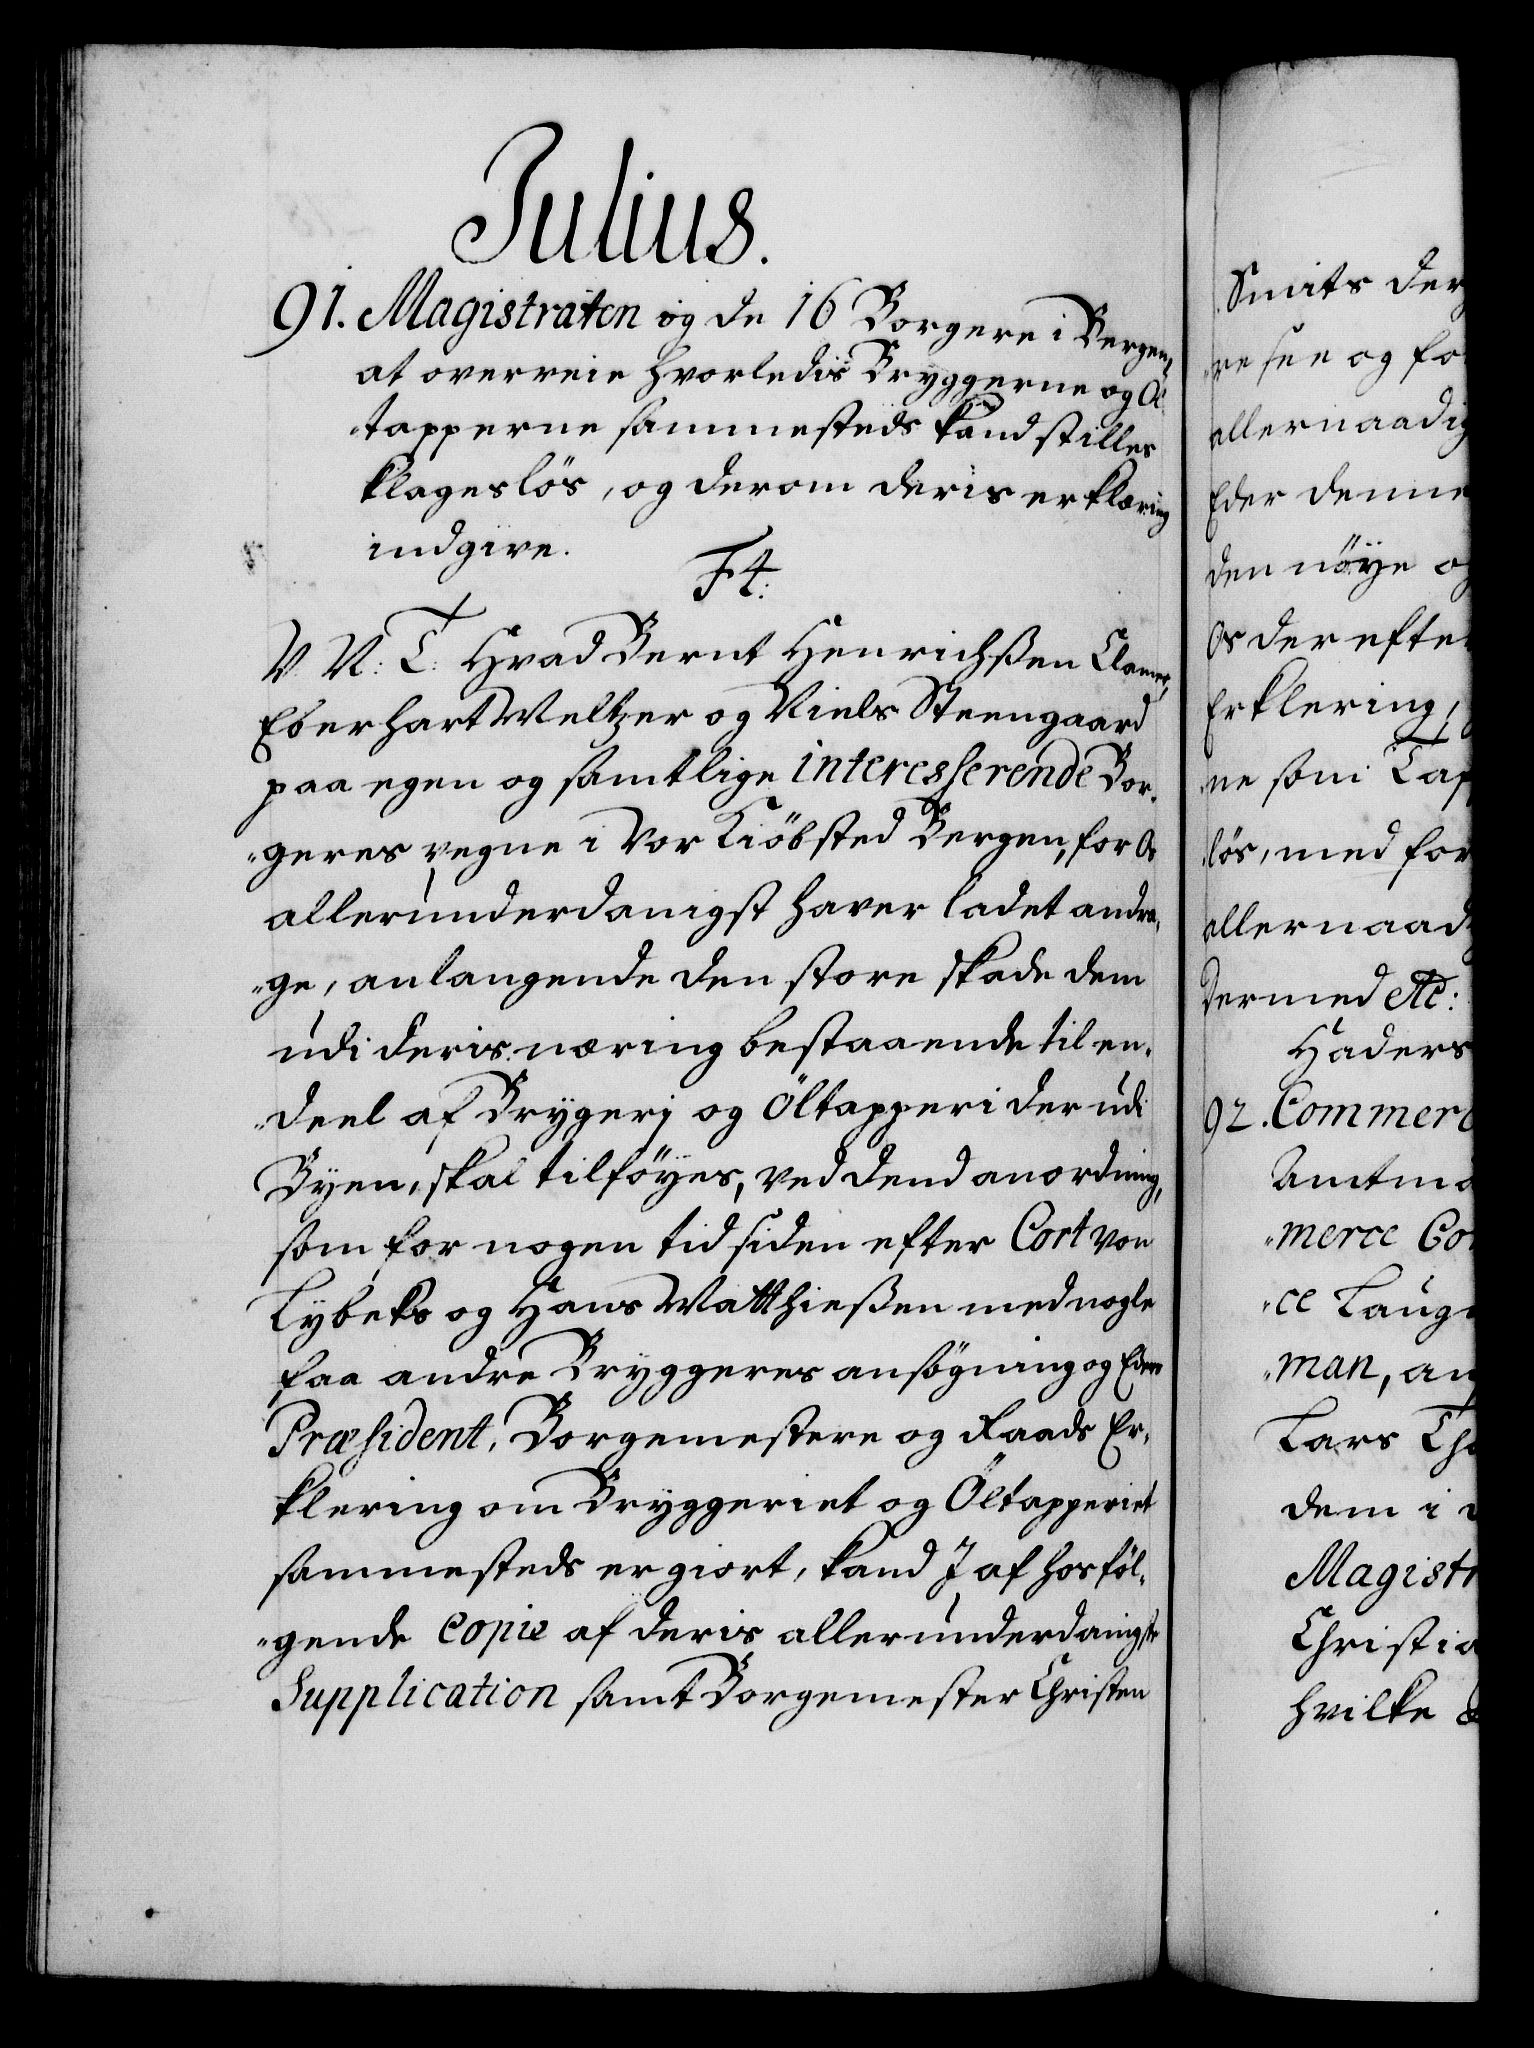 Julius.
91. Magistraten og de 16 Borgere i Bergen,
at overveie hvorledis Bryggerne og Öl-
tapperne sammesteds kand stilles
klageslös, og derom deris erklæring
indgive.
F4.
V. N: T: Hvad Bernt Henrichßen Clamer,
Eberhart Weltzer og Niels Steengaard
paa egen og samtlige interesserende Bor-
„geres vegne i Vor Kiöbsted Bergen, for Os
allerunderdanigst haver ladet andra-
„ge, anlangende den store skade dem
udi deris næring bestaaende til en-
„deel af Brygerj og Öltapperi der udi
Byen, skal tilföyes, ved dend anordning,
som for nogen tid siden efter Cort von
Lybeks og Hans Matthießen med nogle
faa andre Bryggeres ansögning og Eders
Præsident, Borgemestere og Raads Er-
klering om Bryggeriet og Öltapperiet
sammesteds er giort, kand I af hosföl-
„gende copie af deris allerunderdanigste
Supplication samt Borgemester Christen
Smits der
„re see og fo
allernaadig
Eder denne
den nöye og
Os der efter
Erklering,
„ne som Tap
lös, med for
allernaad
dermed etc:
Haders
92. Commerc
Amtma
„merce Co
„ce Laug
„man, an
Lars Th
dem i
Magistr
Christia
hvilke